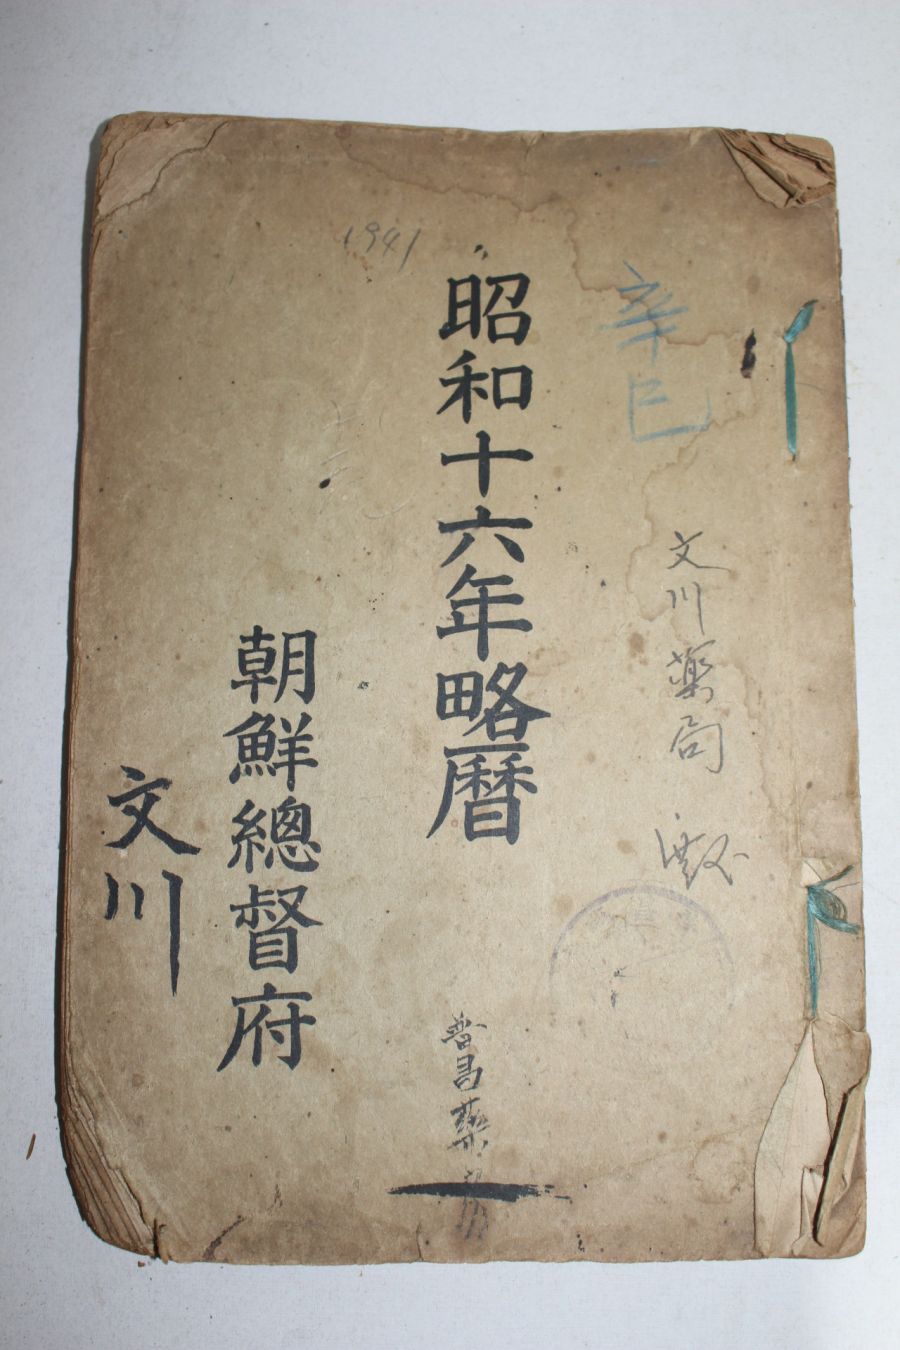 辛巳
文川薬局
1941
昭和十六年略曆
普昌薬房
朝鮮總督府
文川